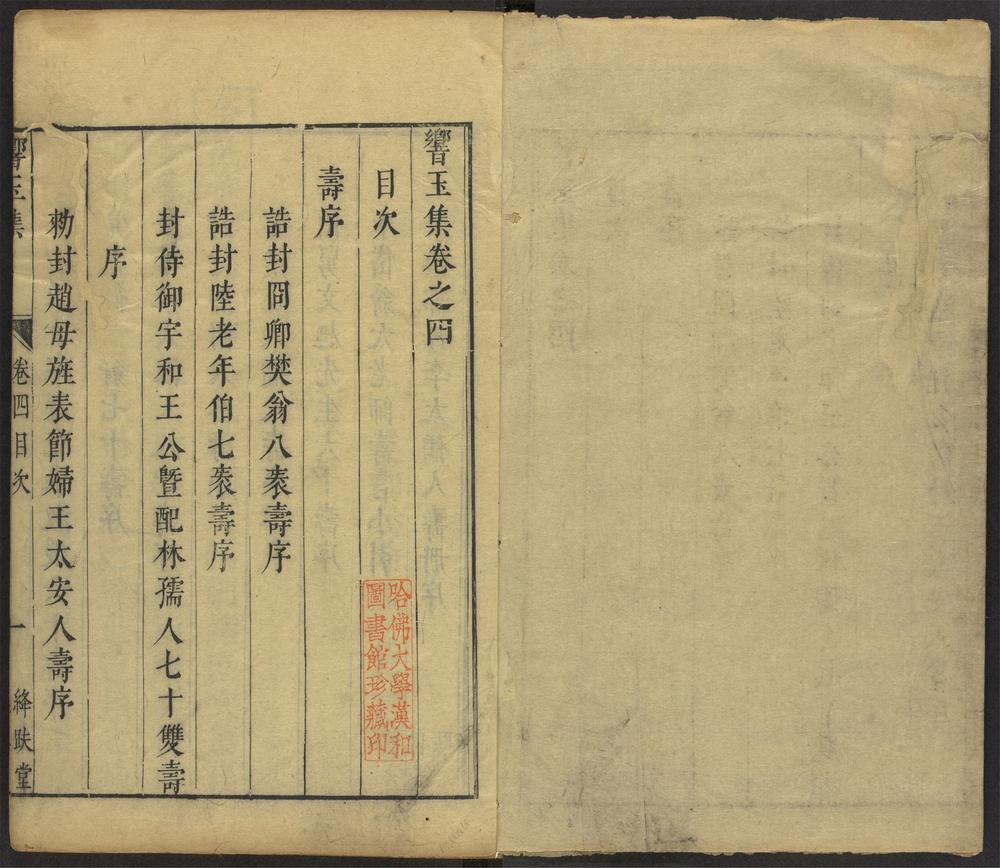 響玉集卷之四
目次
壽序
誥封冏卿樊翁八袠壽序
誥封陸老年伯七袠壽序
封侍御宇和王公暨配林孺人七十雙壽
序
勑封趙母旌表節婦王太安人壽序
響玉集
卷四目次
一
絳趺堂
哈佛大學漢和
圖書館珍藏印